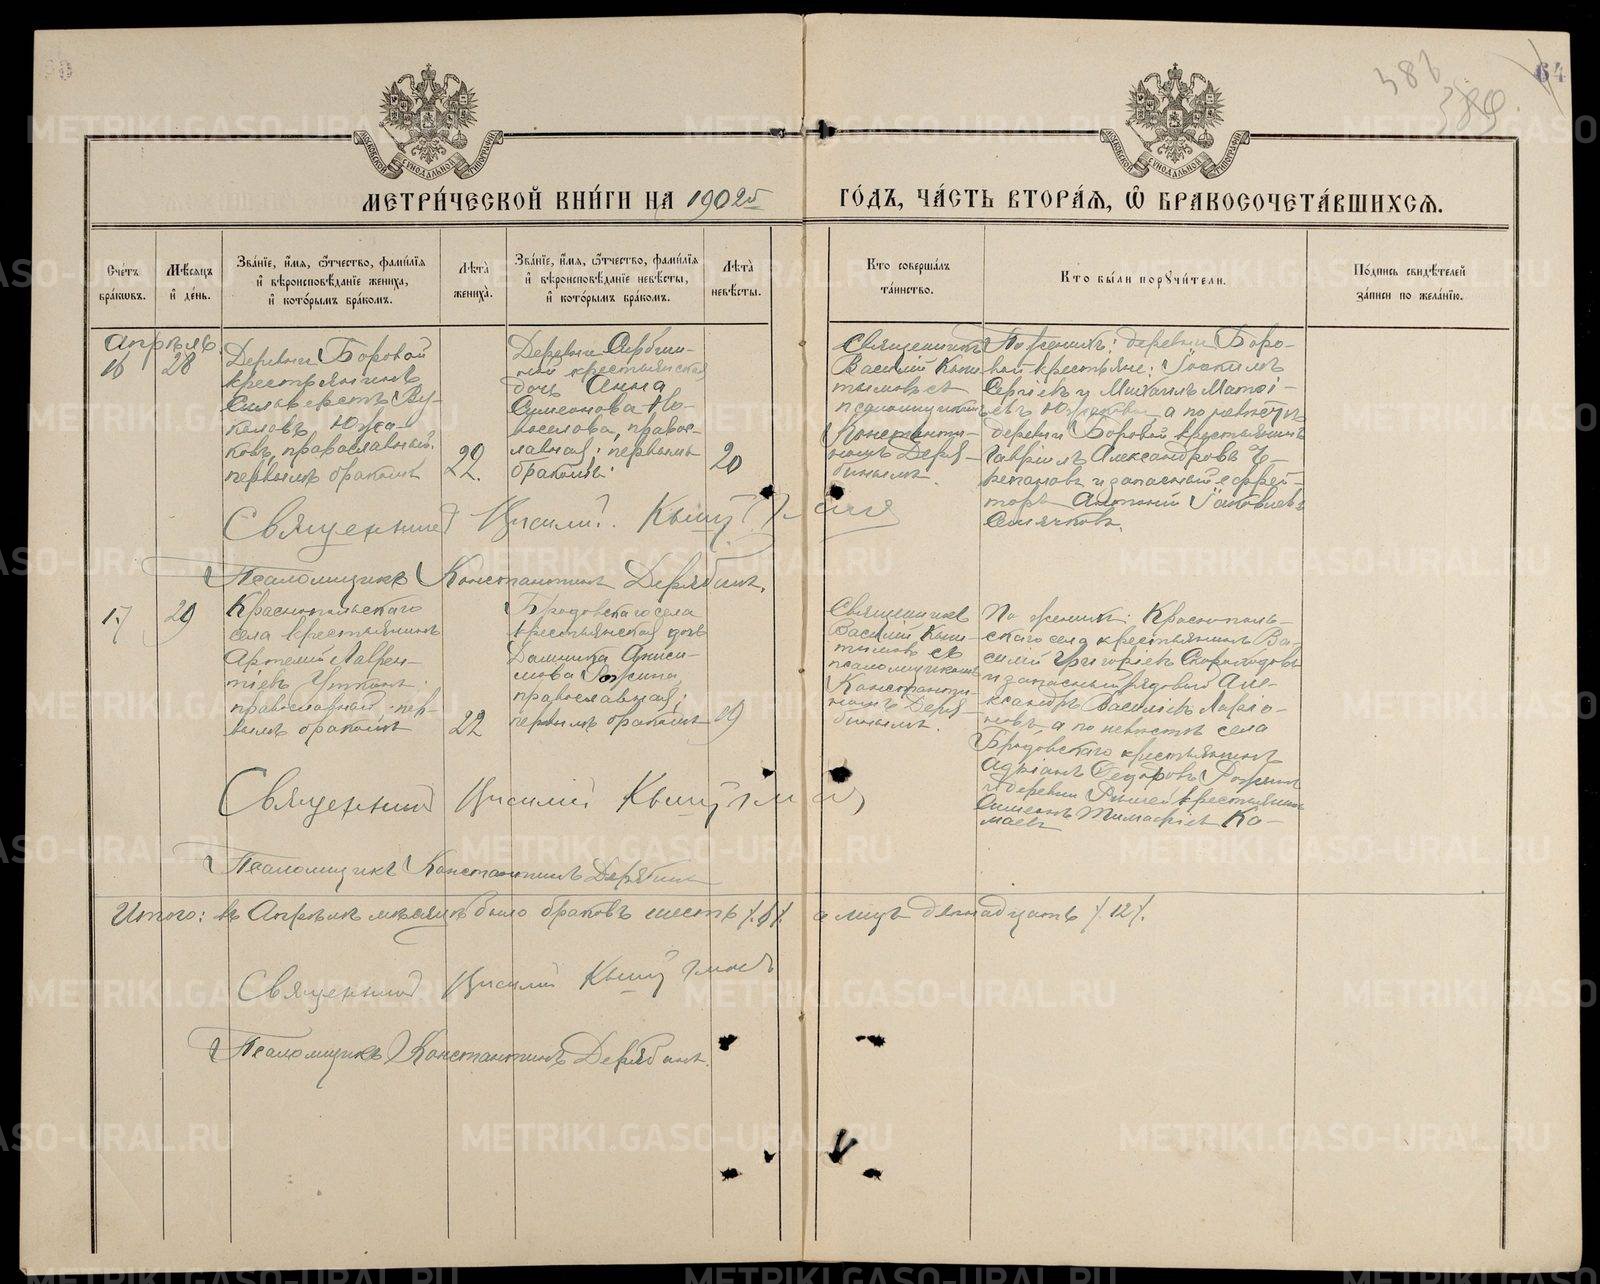 64
МЕТРИ́ЧЕСКОЙ КНИ́ГИ НА 1902й ГО́ДЪ, ЧА́СТЬ ВТОРА́Я, Ѡ БРАКОСОЧЕТА́ВШИХСЯ.
Сче́тъ бра́ковъ.
Мѣ́сяцъ и҆ де́нь.
Зва́нїе, и҆́мя, ѻ҆́тчество, фами́лїя и҆ вѣроисповѣ́данїе жениха̀, и҆ кото́рымъ бра́комъ.
Лѣта̀ жениха̀.
Зва́нїе, и҆́мя, ѻ҆́тчество, фами́лїя и҆ вѣроисповѣ́данїе невѣ́сты, и҆ кото́рымъ бра́комъ.
Лѣта̀ невѣ́сты.
Кто соверша́лъ та́инство.
Кто бы́ли порꙋчи́тели.
По́дпись свидѣ́телей за́писи по жела́нїю.
Апрѣль
16
28
Деревни Боровой
крестьянинъ
Сильверстъ Ву-
коловъ Южа-
ковъ, православный,
первымъ бракомъ
22.
Деревни
крестьянская
дочь Анна
Симеонова Но-
воселова, право-
славная; первымъ
бракомъ
20
Священникъ
Василій Кыш-
тымовъ съ
псаломщикомъ
Константи-
номъ Деря-
бинымъ.
По женихѣ: деревни Боро-
вой крестьяне: Іоакимъ
Сергіевъ и Михаилъ Матѳі-
евъ Южаковы, а по невѣстѣ
деревни Боровой крестьянинъ
Гавріилъ Александровъ Че-
репановъ и запасный ефрей-
торъ Антоній Іаковлевъ
Священникъ Василій Кыштымовъ
Псаломщикъ Константинъ Дерябинъ.
17
29
Краснопольскаго
села крестьянинъ
Артемій Лаврен-
тіевъ Уткинъ.
православный, пер-
вымъ бракомъ
22
Бродовскаго села
крестьянская дочь
Домника Аниси-
мова
православная;
первымъ бракомъ
19
Священникъ
Василій Кыш-
тымовъ съ
псаломщикомъ
Константи-
номъ Деря-
бинымъ.
По женихѣ: Краснополь-
скаго села крестьянинъ Ва-
силій Григоріевъ Скороходовъ
и запасный рядовой Але-
ксандръ Василіевъ
а по невѣстѣ села
Бродовскаго крестьянинъ
Адріанъ Ѳедоровъ
и деревни крестьянинъ
Симеонъ Тимоѳіевъ Ка-
маевъ
Священникъ Василій Кыштымовъ
Псаломщикъ Константинъ Дерябинъ
Итого: въ Апрѣлѣ мѣсяцѣ было браковъ шесть /.6/. а лицъ двенадцать /.12/.
Священникъ Василій Кыштымовъ
Псаломщикъ Константинъ Дерябинъ.
METRIKI.GASO-URAL.RU